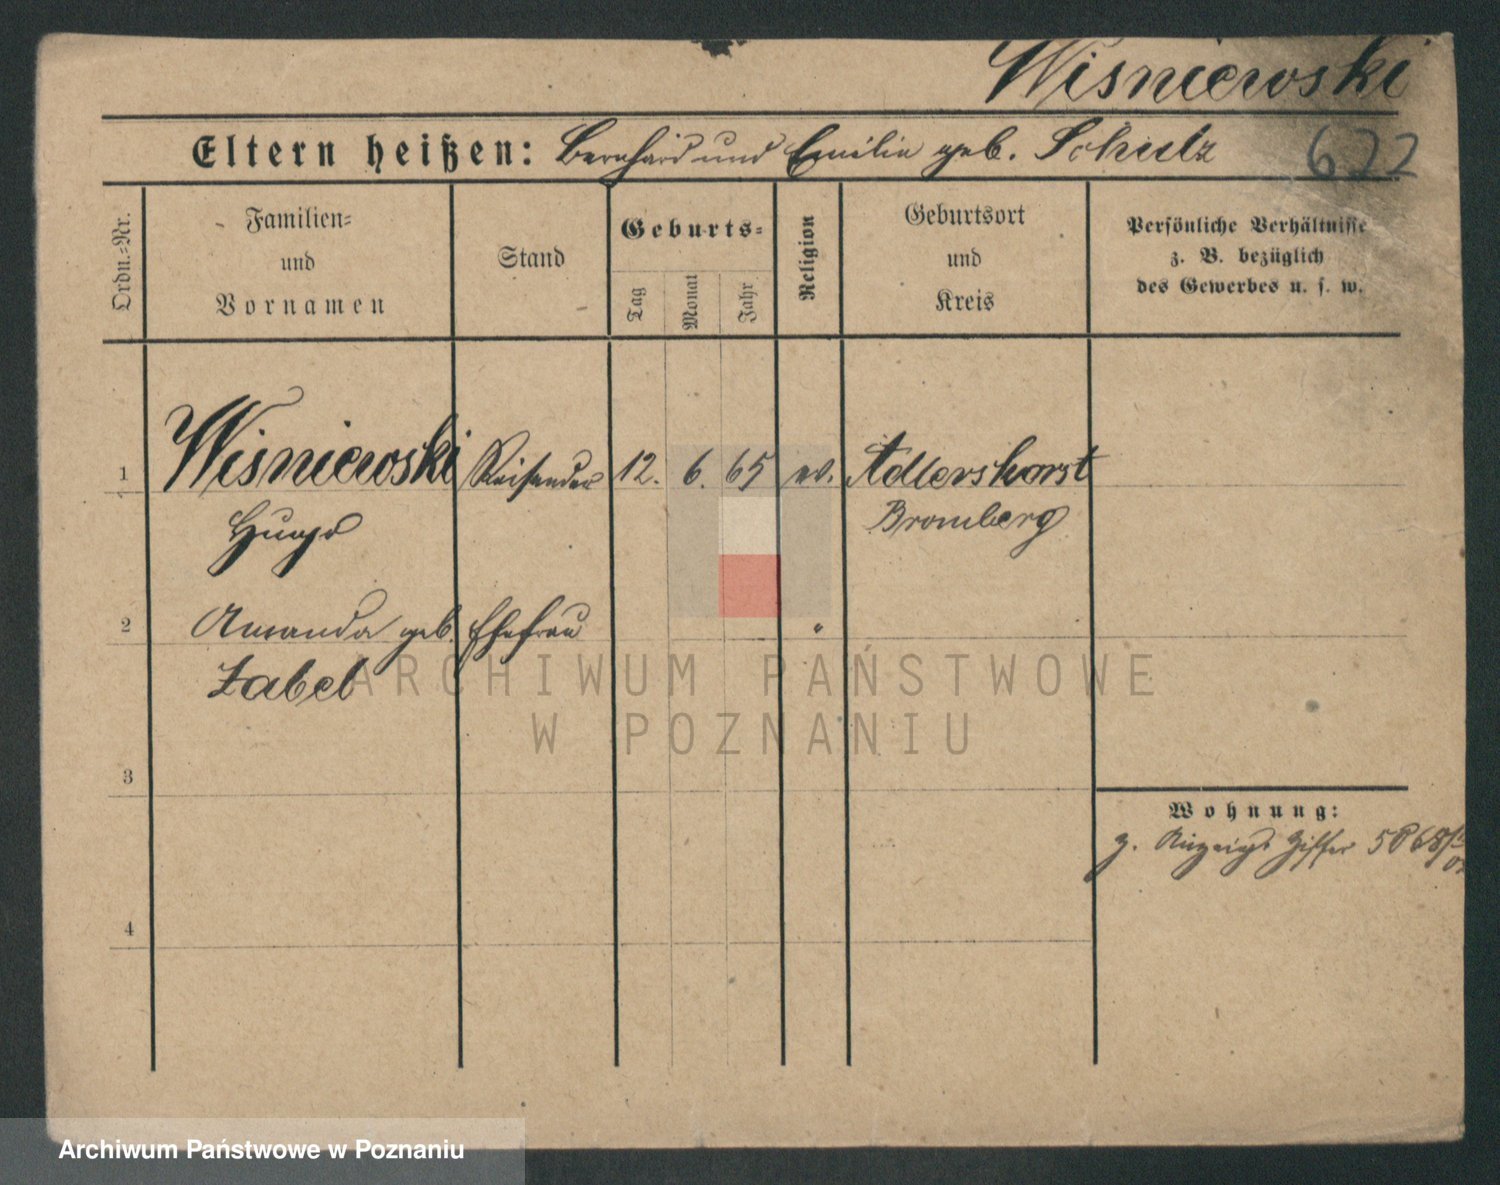 Wisniewski
Eltern heißen: Bernhard und Emilie geb. Schulz 622
Ordn.-Nr.
Familien-
und
Vornamen
Stand
Geburts-
Tag
Monat
Jahr
Religion
Geburtsort
und
Kreis
Persönliche Verhältnisse
z. B. bezüglich
des Gewerbes u. s. w.
1 Wisniewski Reisender 12. 6. 65 ev. Adlershorst
Hugo Bromberg
2 Amanda geb. Ehefrau "
Zabel
ARCHIWUM PAŃSTWOWE
W POZNANIU
3
Wohnung:
z. Ziffer
4
Archiwum Państwowe w Poznaniu